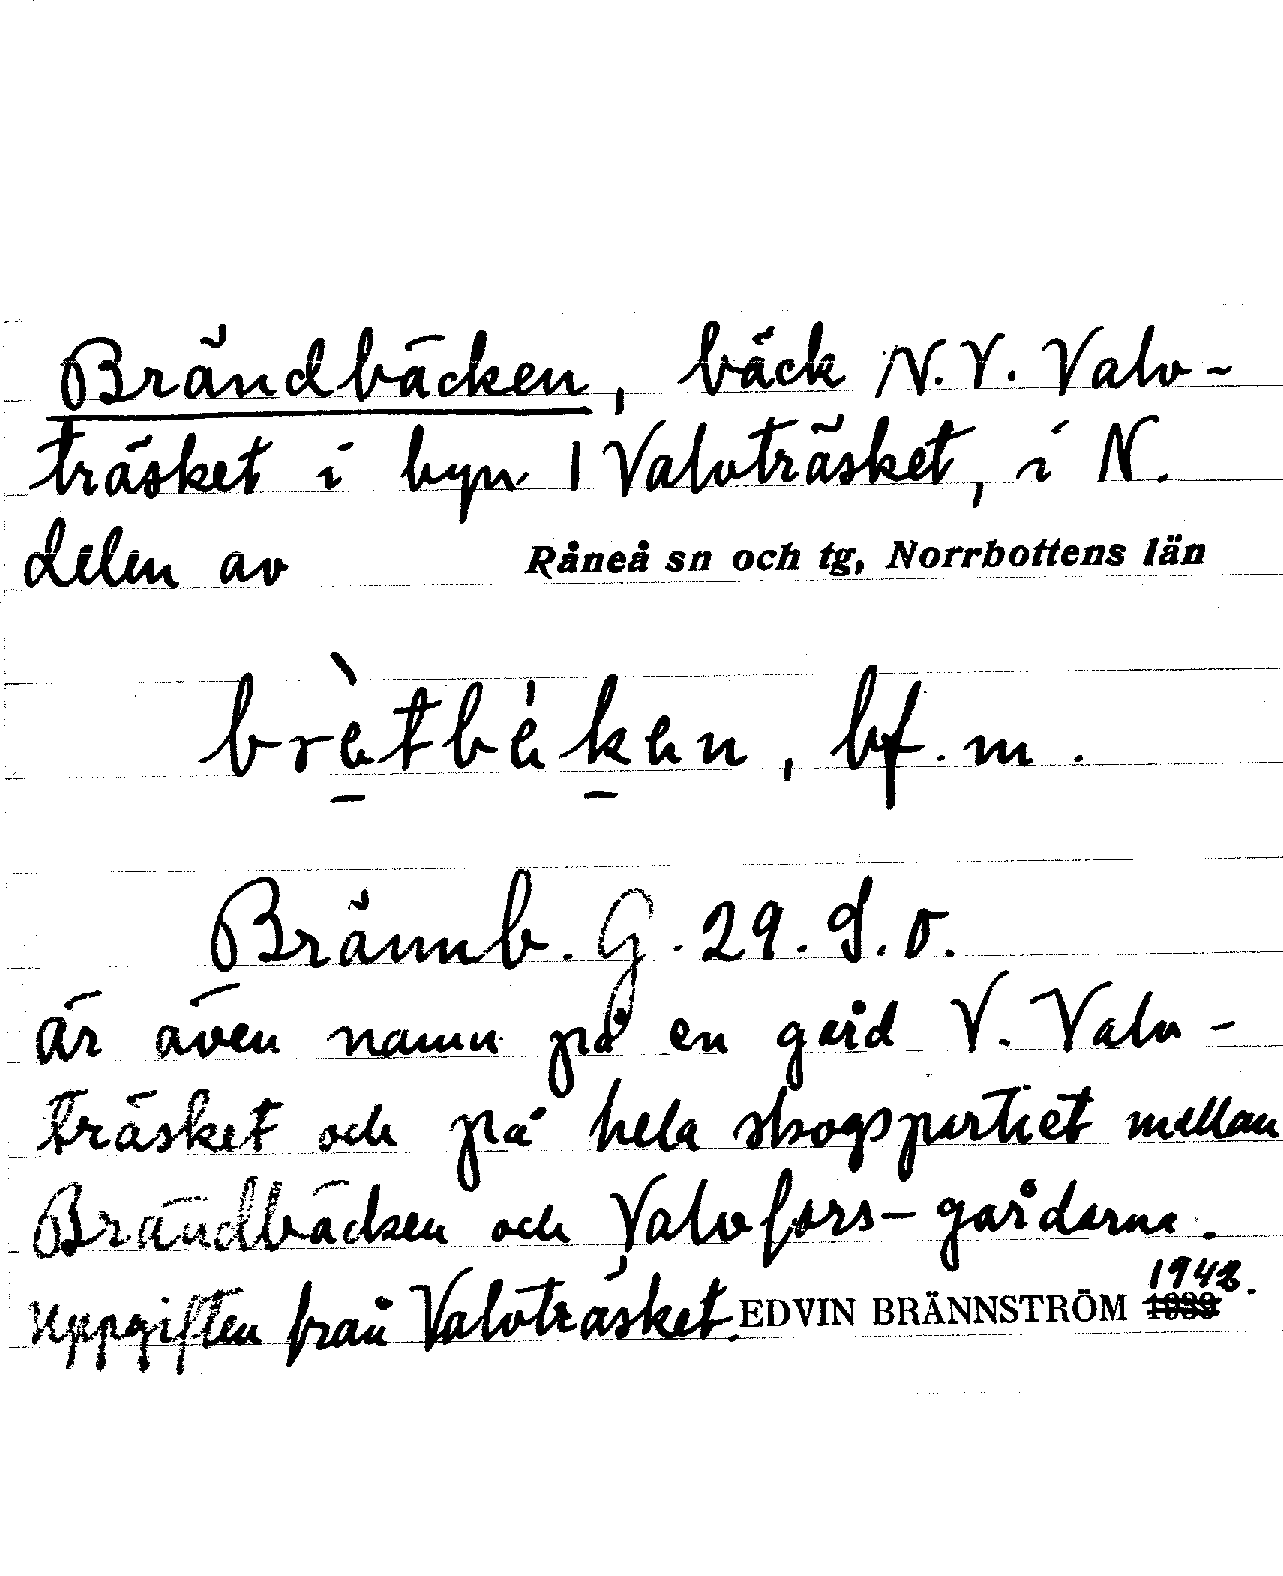 Brändbäcken, bäck N.V. Valv-
träsket i byn 1 Valvträsket, i N.
delen av Råneå sn och tg, Norrbottens län
brètbékan, bf. m.
Brännb. G. 29. S.o.
är även namn på en gård V. Valv-
träsket och på hela skogspartiet mellan
Brändbäcken och Valvfors-gårdarna.
Uppgiften från Valvträsket. EDVIN BRÄNNSTRÖM 1942.